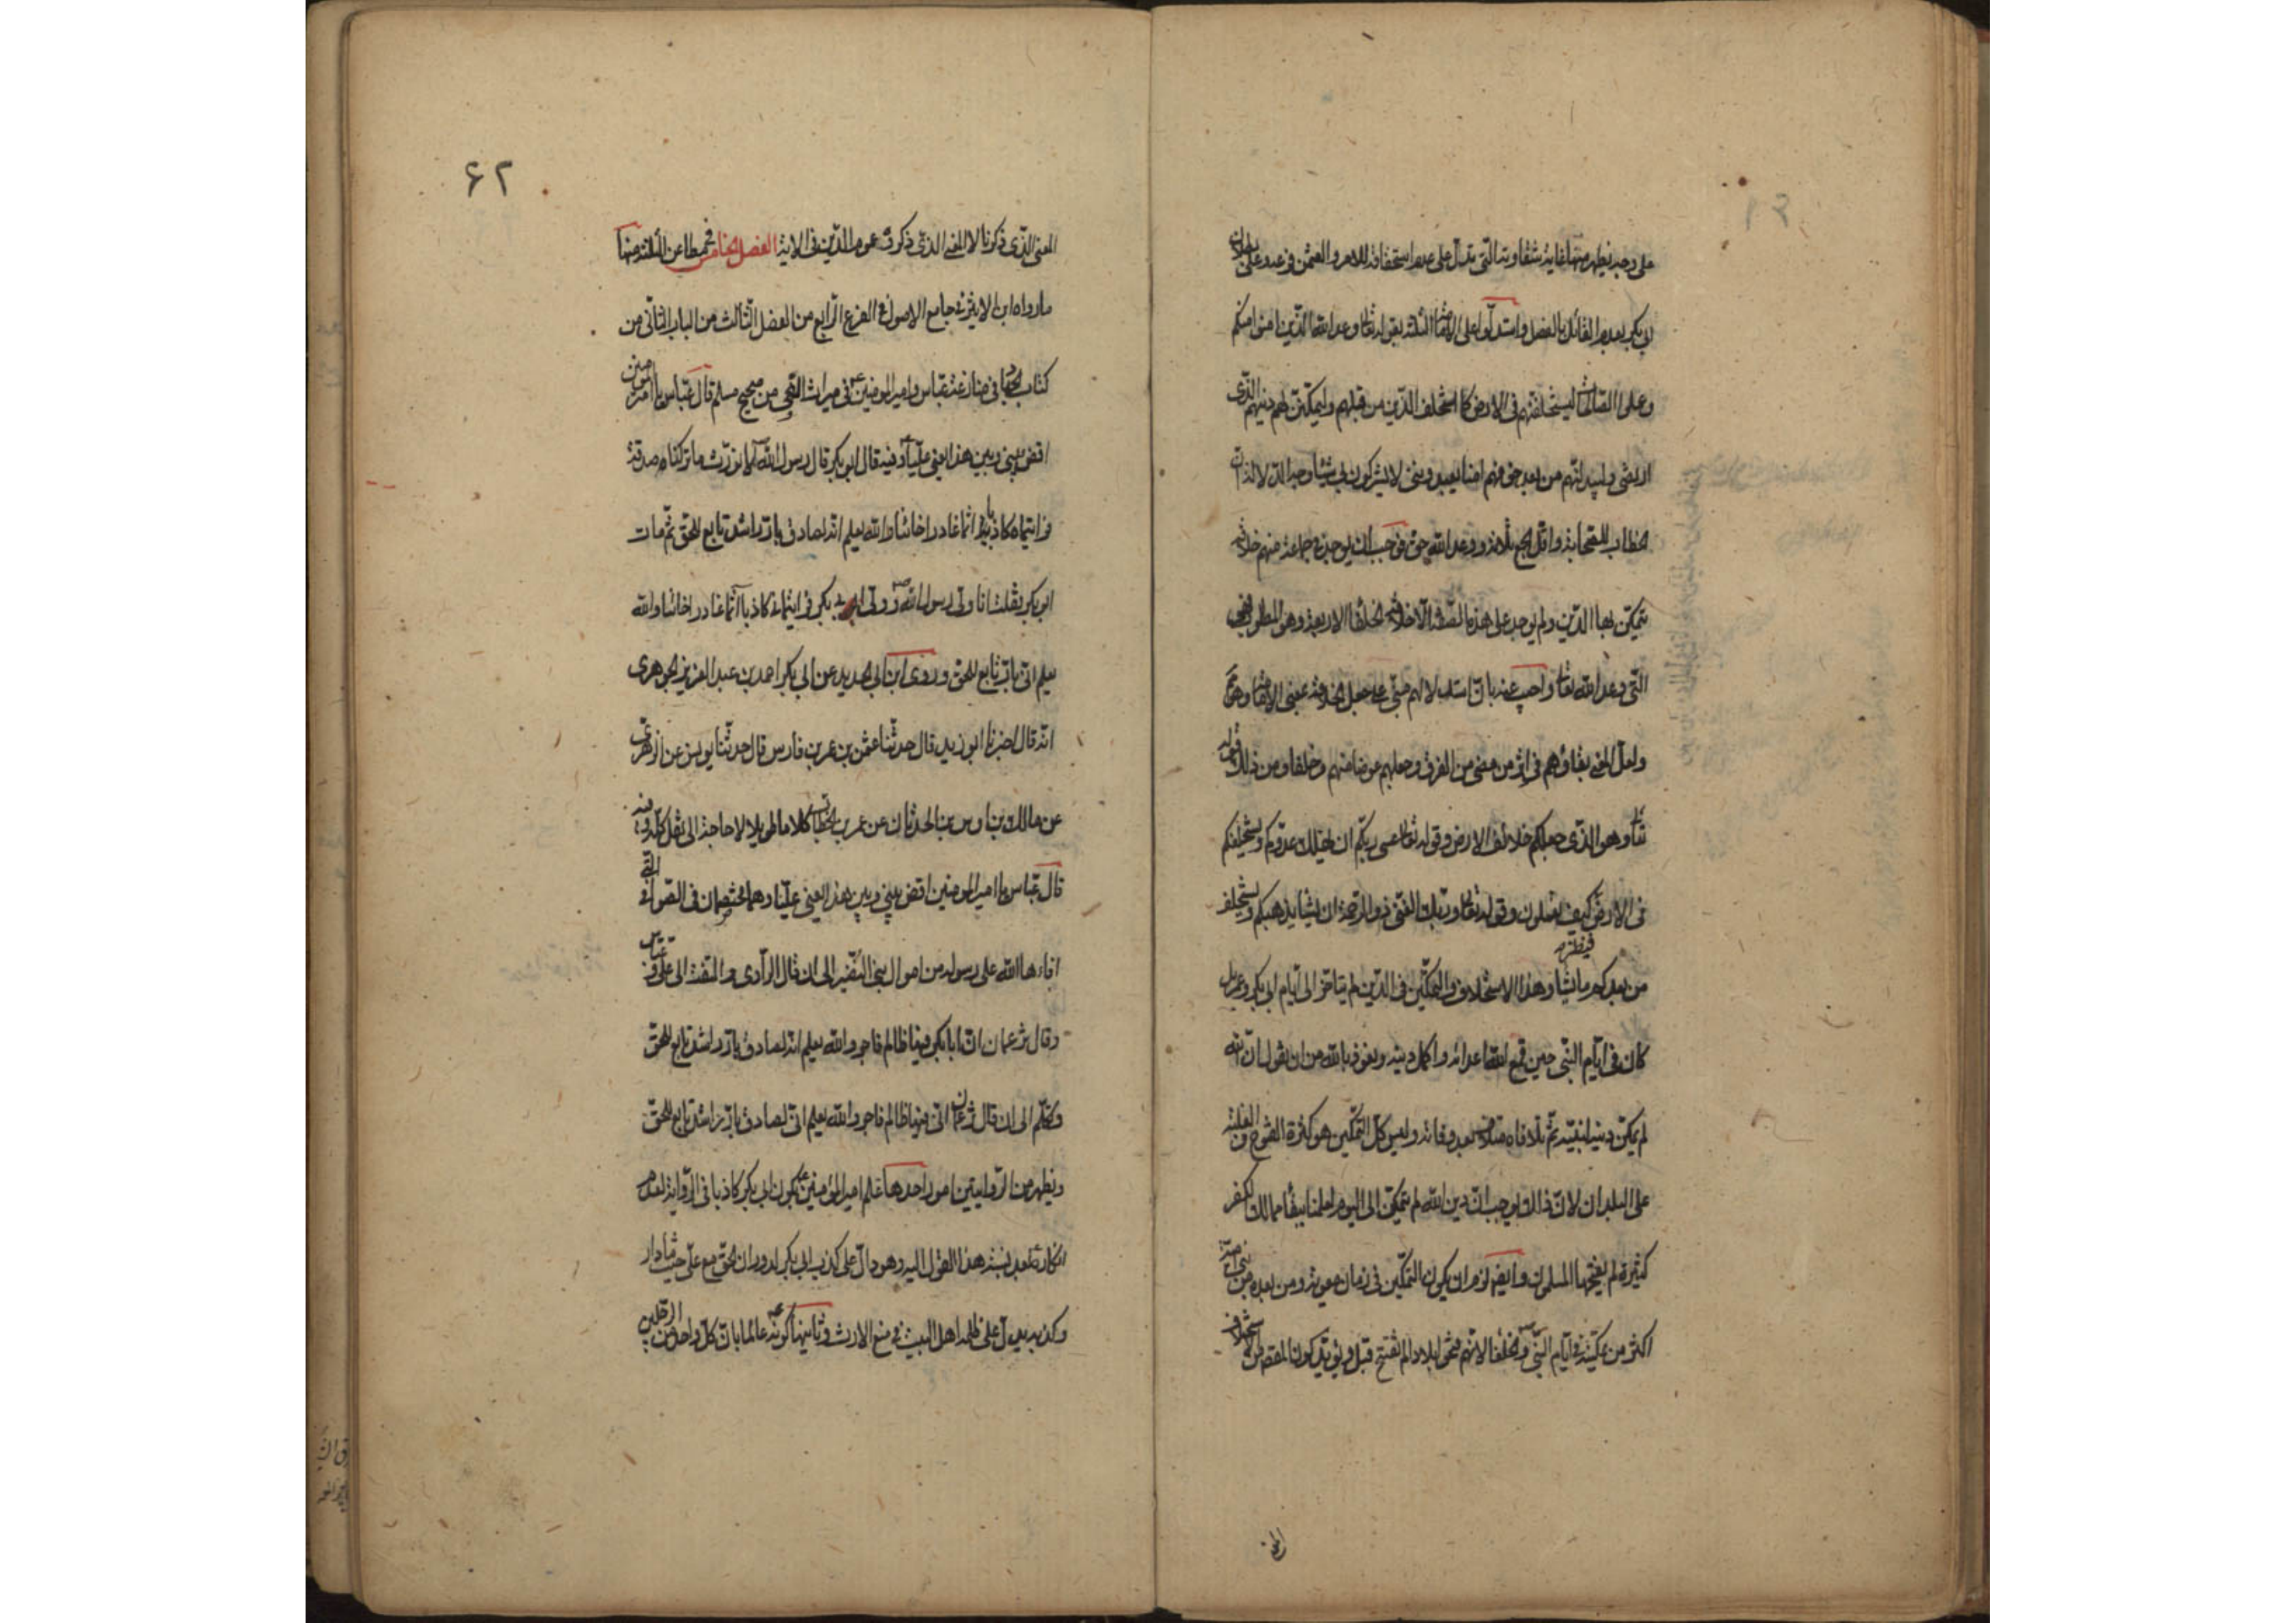 على وجه يظهر منها غاية شقاوته التي تدل على عدم استحقاقه للامر والعثمن في عدد على
ابي بكر بعدم القائل بالفصل واستدلوا على الثلثة بقوله تعا وعد الله الذين امنوا منكم
وعملوا الصالحات ليستخلفنهم في الارض كما استخلف الذين من قبلهم وليمكنن لهم دينهم الذي
ارتضى وليبدلنهم من بعد خوفهم امنا يعبدونني لا يشركون بي شيئا وجه الدلالة ان
الخطاب للصحابة واقل الجمع ثلاثة ووعد الله حق فوجب ان يوجد في جماعة منهم خلافة
يتمكن بها الدين ولم يوجد على هذه الصفة الا خلافة الخلفا الاربعة وهو المطلوب فهي
التي وعد الله تعا واجيب عنه بان استدلالهم مبني على جعل الخلافة بمعنى الامامة وهو
ولعل المعنى بقاؤهم في اثر من مضى من القرن وجعلهم عوضا منهم وخلفا ومن ذلك قوله
تعا وهو الذي جعلكم خلائف الارض وقوله تعا عسى ربكم ان يهلك عدوكم ويستخلفكم
في الارض كيف تعملون وقوله تعا وربك الغني ذو الرحمة ان يشا يذهبكم ويستخلف
فينظر
من بعدكم ما يشا وهذا الاستخلاف والتمكين في الدين لم يتاخر الى ايام ابي بكر وعمر بل
كان في ايام النبي حين قمع الله اعدائه واكمل دينه ونعوذ بالله من ان نقول ان الله
لم يمكن دينه لنبيه ثم تلافاه بعد وفاته وليس كل التمكين هو كثرة الفتوح والغلبة
على البلدان لان ذلك يوجب ان دين الله لم يتمكن الى اليوم لعلمنا ببقاء ممالك الكفر
كثيرة لم يفتحها المسلمون وايضا لزم ان يكون التمكين في زمان معوية ومن بعده من بني امية
اكثر من تمكينه في ايام النبي والخلفا لانهم فتحوا بلادا لم تفتح قبل ويؤيد كون المقصد من الاستخلاف
المعنى
۶۲
المعنى الذي ذكرنا لا المعنى الذي ذكروه عموم الذين في الاية الفصل الخامس في مطاعن الثلثة منها
ما رواه ابن الاثير في جامع الاصول في الفرع الرابع من الفصل الثالث من الباب الثاني من
كتاب الجهاد في منازعة عباس وامير المومنين في ميراث النبي من صحيح مسلم قال عباس يا امير المومنين
اقض بيني وبين هذا يعني عليا وفيه قال ابو بكر قال رسول الله لا نورث ما تركناه صدقة
فرايتماه كاذبا اثما غادرا خائنا والله يعلم انه لصادق بار راشد تابع للحق ثم مات
ابو بكر فقلت انا ولي رسول الله وولي ابي بكر فرايتماني كاذبا آثما غادرا خائنا والله
يعلم اني بار تابع للحق وروى ابن ابي الحديد عن ابي بكر احمد بن عبد العزيز الجوهري
انه قال اخبرنا ابو زيد قال حدثنا عثمن بن عمر بن فارس قال حدثنا يونس عن الزهري
عن مالك بن اوس بن الحدثان عن عمر بن الخطاب كلاما طويلا لا حاجة الى نقل كله وفيه
قال عباس يا امير المومنين اقض بيني وبين هذا يعني عليا وهما يختصمان في الصوافي التي
افاءها الله على رسوله من اموال بني النضير الى ان قال الراوي والتفت الى علي وعباس
وقال تزعمان ان ابا بكر فيها ظالم فاجر والله يعلم انه لصادق بار راشد تابع للحق
وتكلم الى ان قال تزعمان اني فيها ظالم فاجر والله يعلم اني لصادق بار راشد تابع للحق
ويظهر من الروايتين امور احدها علم امير المومنين بكون ابي بكر كاذبا في الرواية لعدم
انكاره بعد نسبة هذا القول اليه وهو دال على كذب ابي بكر لدوران الحق مع علي حيثما دار
وكذبه يدل على ظلمه اهل البيت في منع الارث وثانيها كونه عالما بان كل واحد من الرجلين